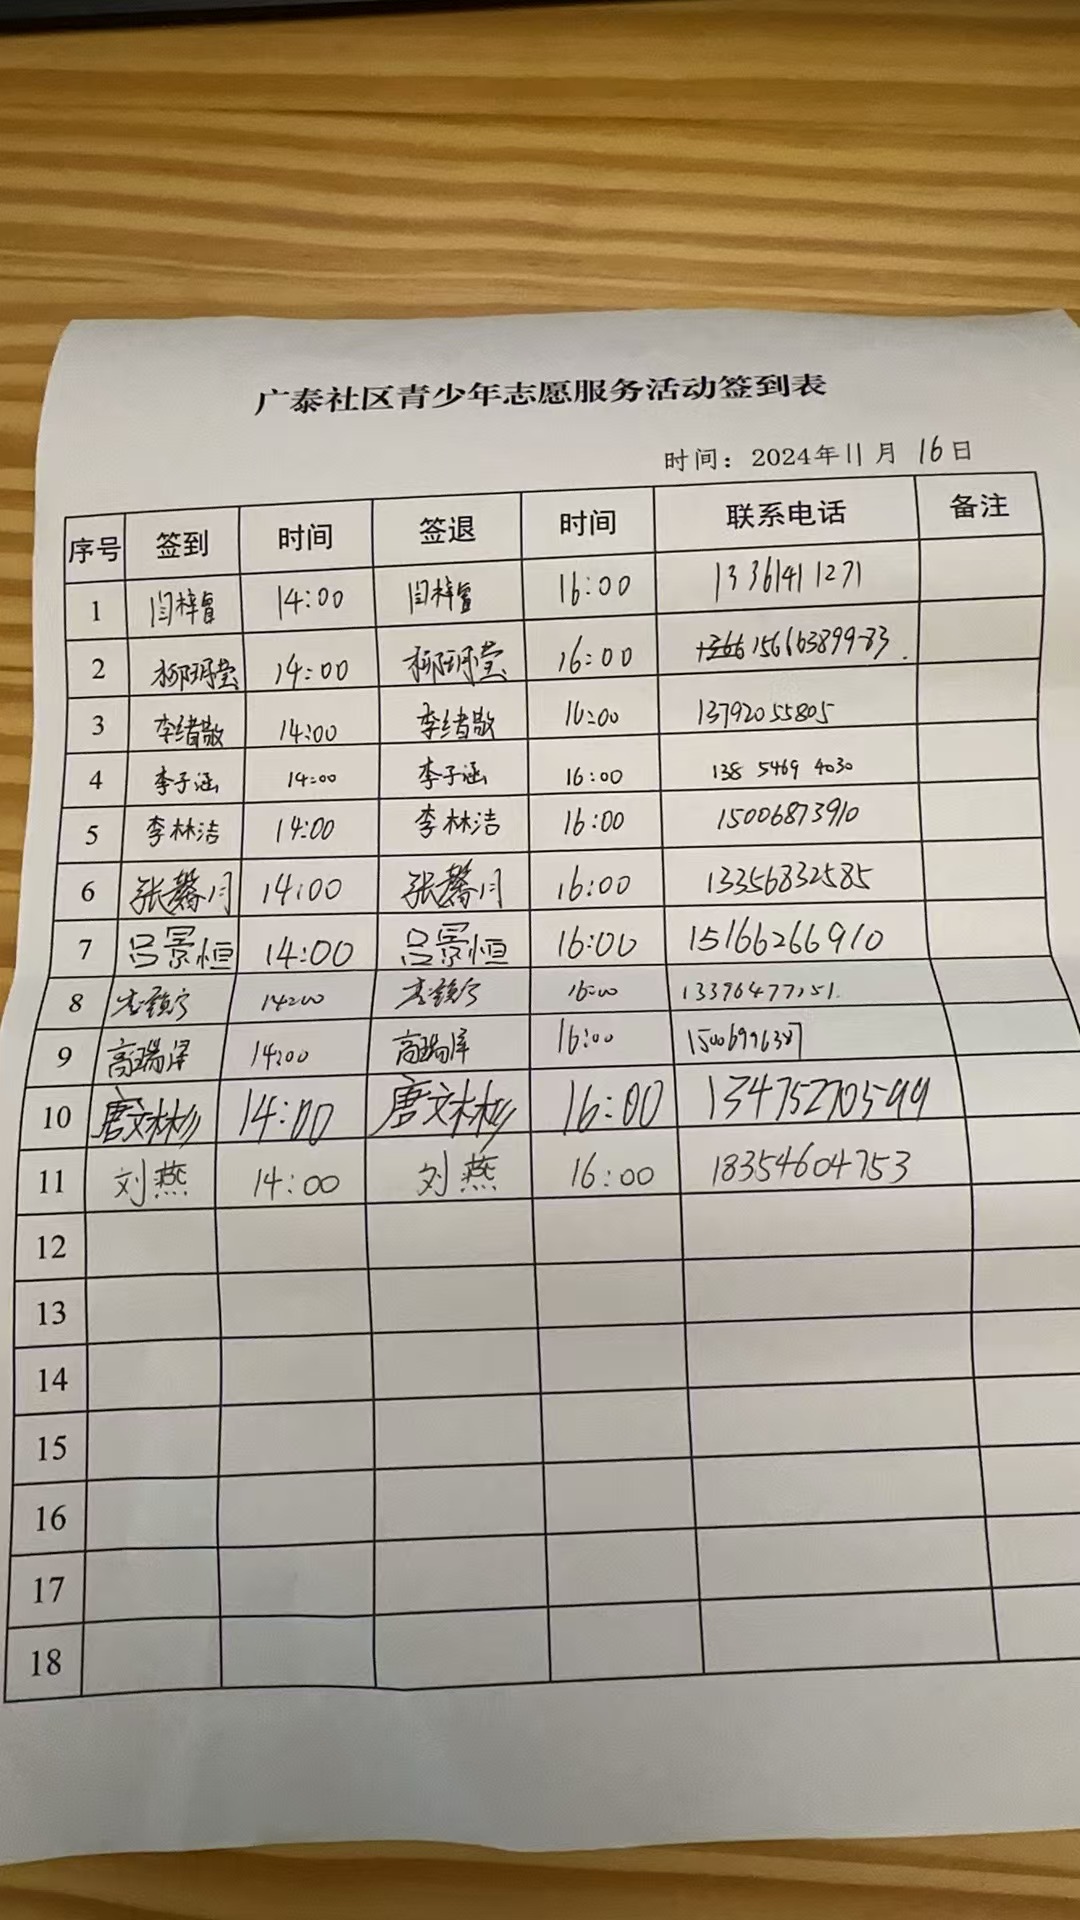 广泰社区青少年志愿服务活动签到表
时间：2024年11月16日
序号 签到 时间 签退 时间 联系电话 备注
1 闫梓冒 14:00 闫梓冒 16:00 13361411271
2 柳玥莹 14:00 柳玥莹 16:00 15666389983
3 李绪敬 14:00 李绪敬 16:00 13792055805
4 李子涵 14:00 李子涵 16:00 138 5469 4030
5 李林洁 14:00 李林洁 16:00 15006873910
6 张馨月 14:00 张馨月 16:00 13356832585
7 吕景恒 14:00 吕景恒 16:00 15166266910
8 14:00 16:00
9 高瑞泽 14:00 高瑞泽 16:00
10 唐文彬 14:00 唐文彬 16:00 13475270599
11 刘燕 14:00 刘燕 16:00 18354604753
12
13
14
15
16
17
18